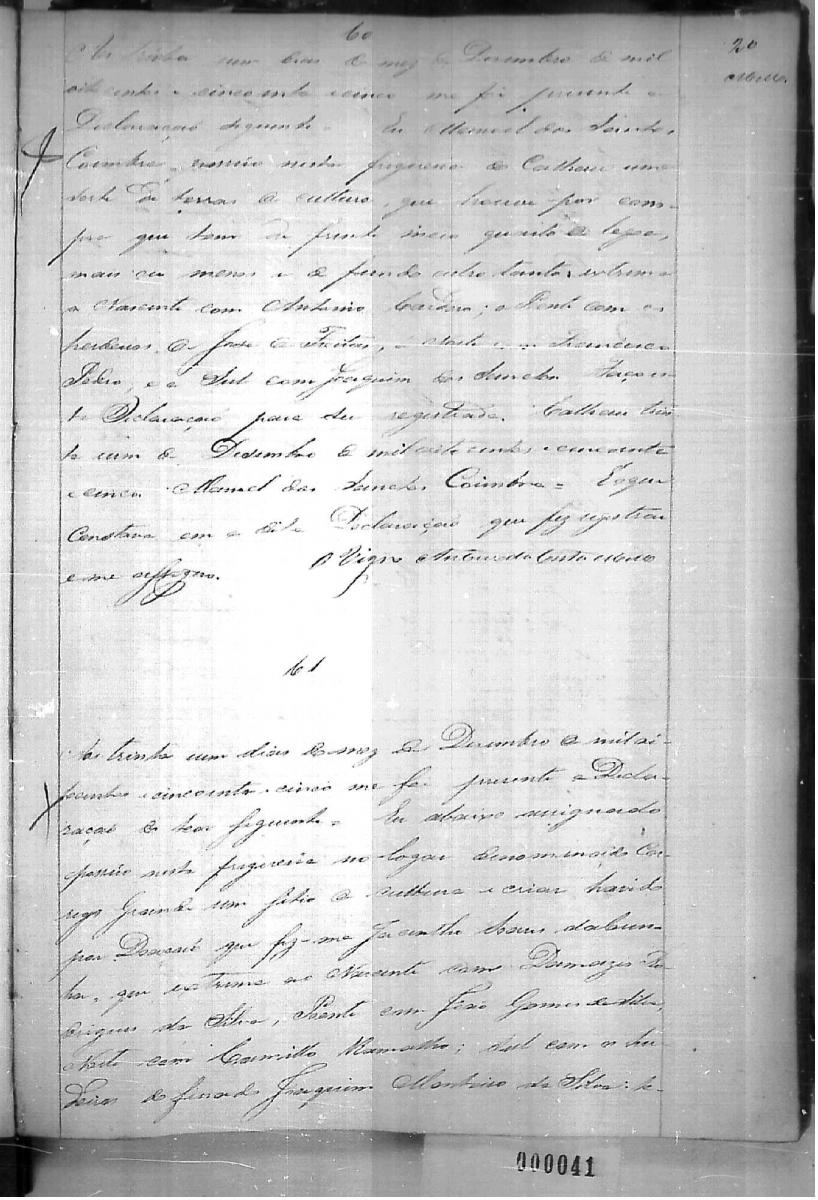 60
20
Aos trinta e um dias do mez de Dezembro de mil
oito centos e cincoenta e cinco me foi presente a
Declaraçaõ seguinte. Eu Manoel dos Santos
Coimbra possúo nesta freguezia de Ca uma
sorte de terras de cultura, que houve por com-
pra que tem de frente meio quarto de legoa,
mais ou menos e de fundo outro tanto, extrema
a Nascente com Antonio Cardoso; o Poente com os
herdeiros de José de Freitas, o Norte com Francisco
Pedro, e o Sul com Joaquim dos Faço es-
ta Declaraçaõ para ser registrada. trin-
ta e um de Dezembro de mil oito centos e cincoenta
e cinco Manoel dos Santos Coimbra = E o que
constava em a dita Declaraçaõ que fiz registrar
e me assigno. O Vigro Antonio da Costa
61
Aos trinta e um dias do mez de Dezembro de mil oi-
tocentos e cincoenta e cinco me foi presente a Decla-
raçaõ do teor seguinte = Eu abaixo assignado
possúo nesta freguezia no logar denominado Cor-
rego Grande um sitio de cultura e criar havido
por Doaçaõ que fez-me Jacintho da Cun-
ha, que extrema ao Nascente com Damazo Ro-
drigues da Silva, Poente com João Gomes da Silva,
Norte com Camillo Ramalho; Sul com os her-
deiros do finado Joaquim Monteiro da Silva: te-
000041